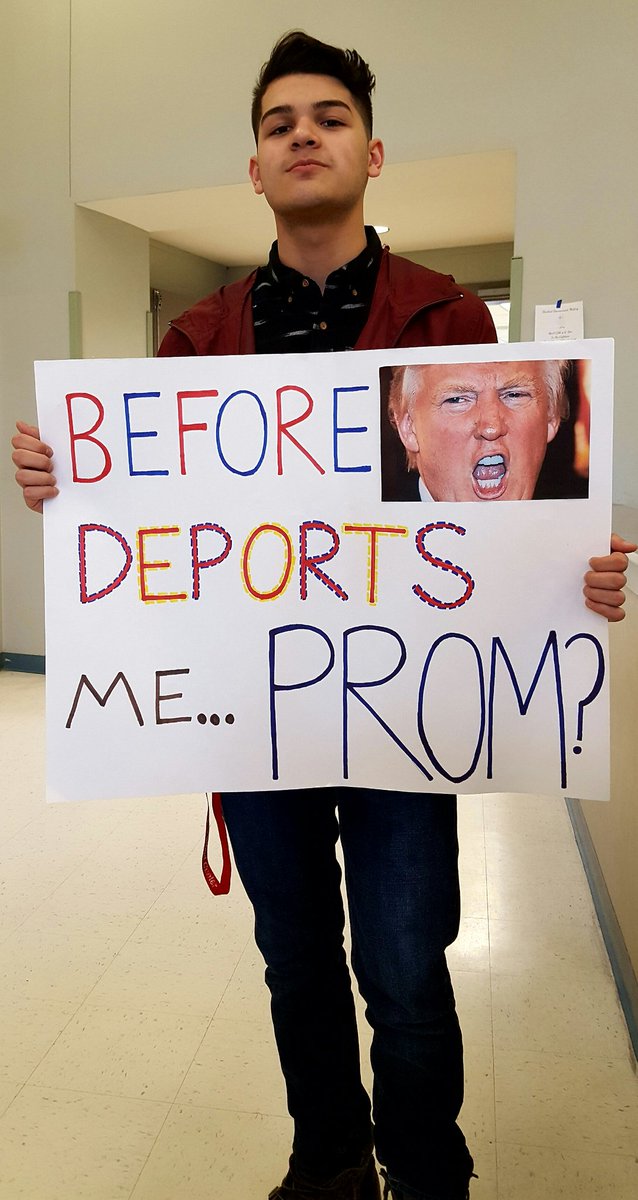 BEFORE
DEPORTS
ME... PROM?